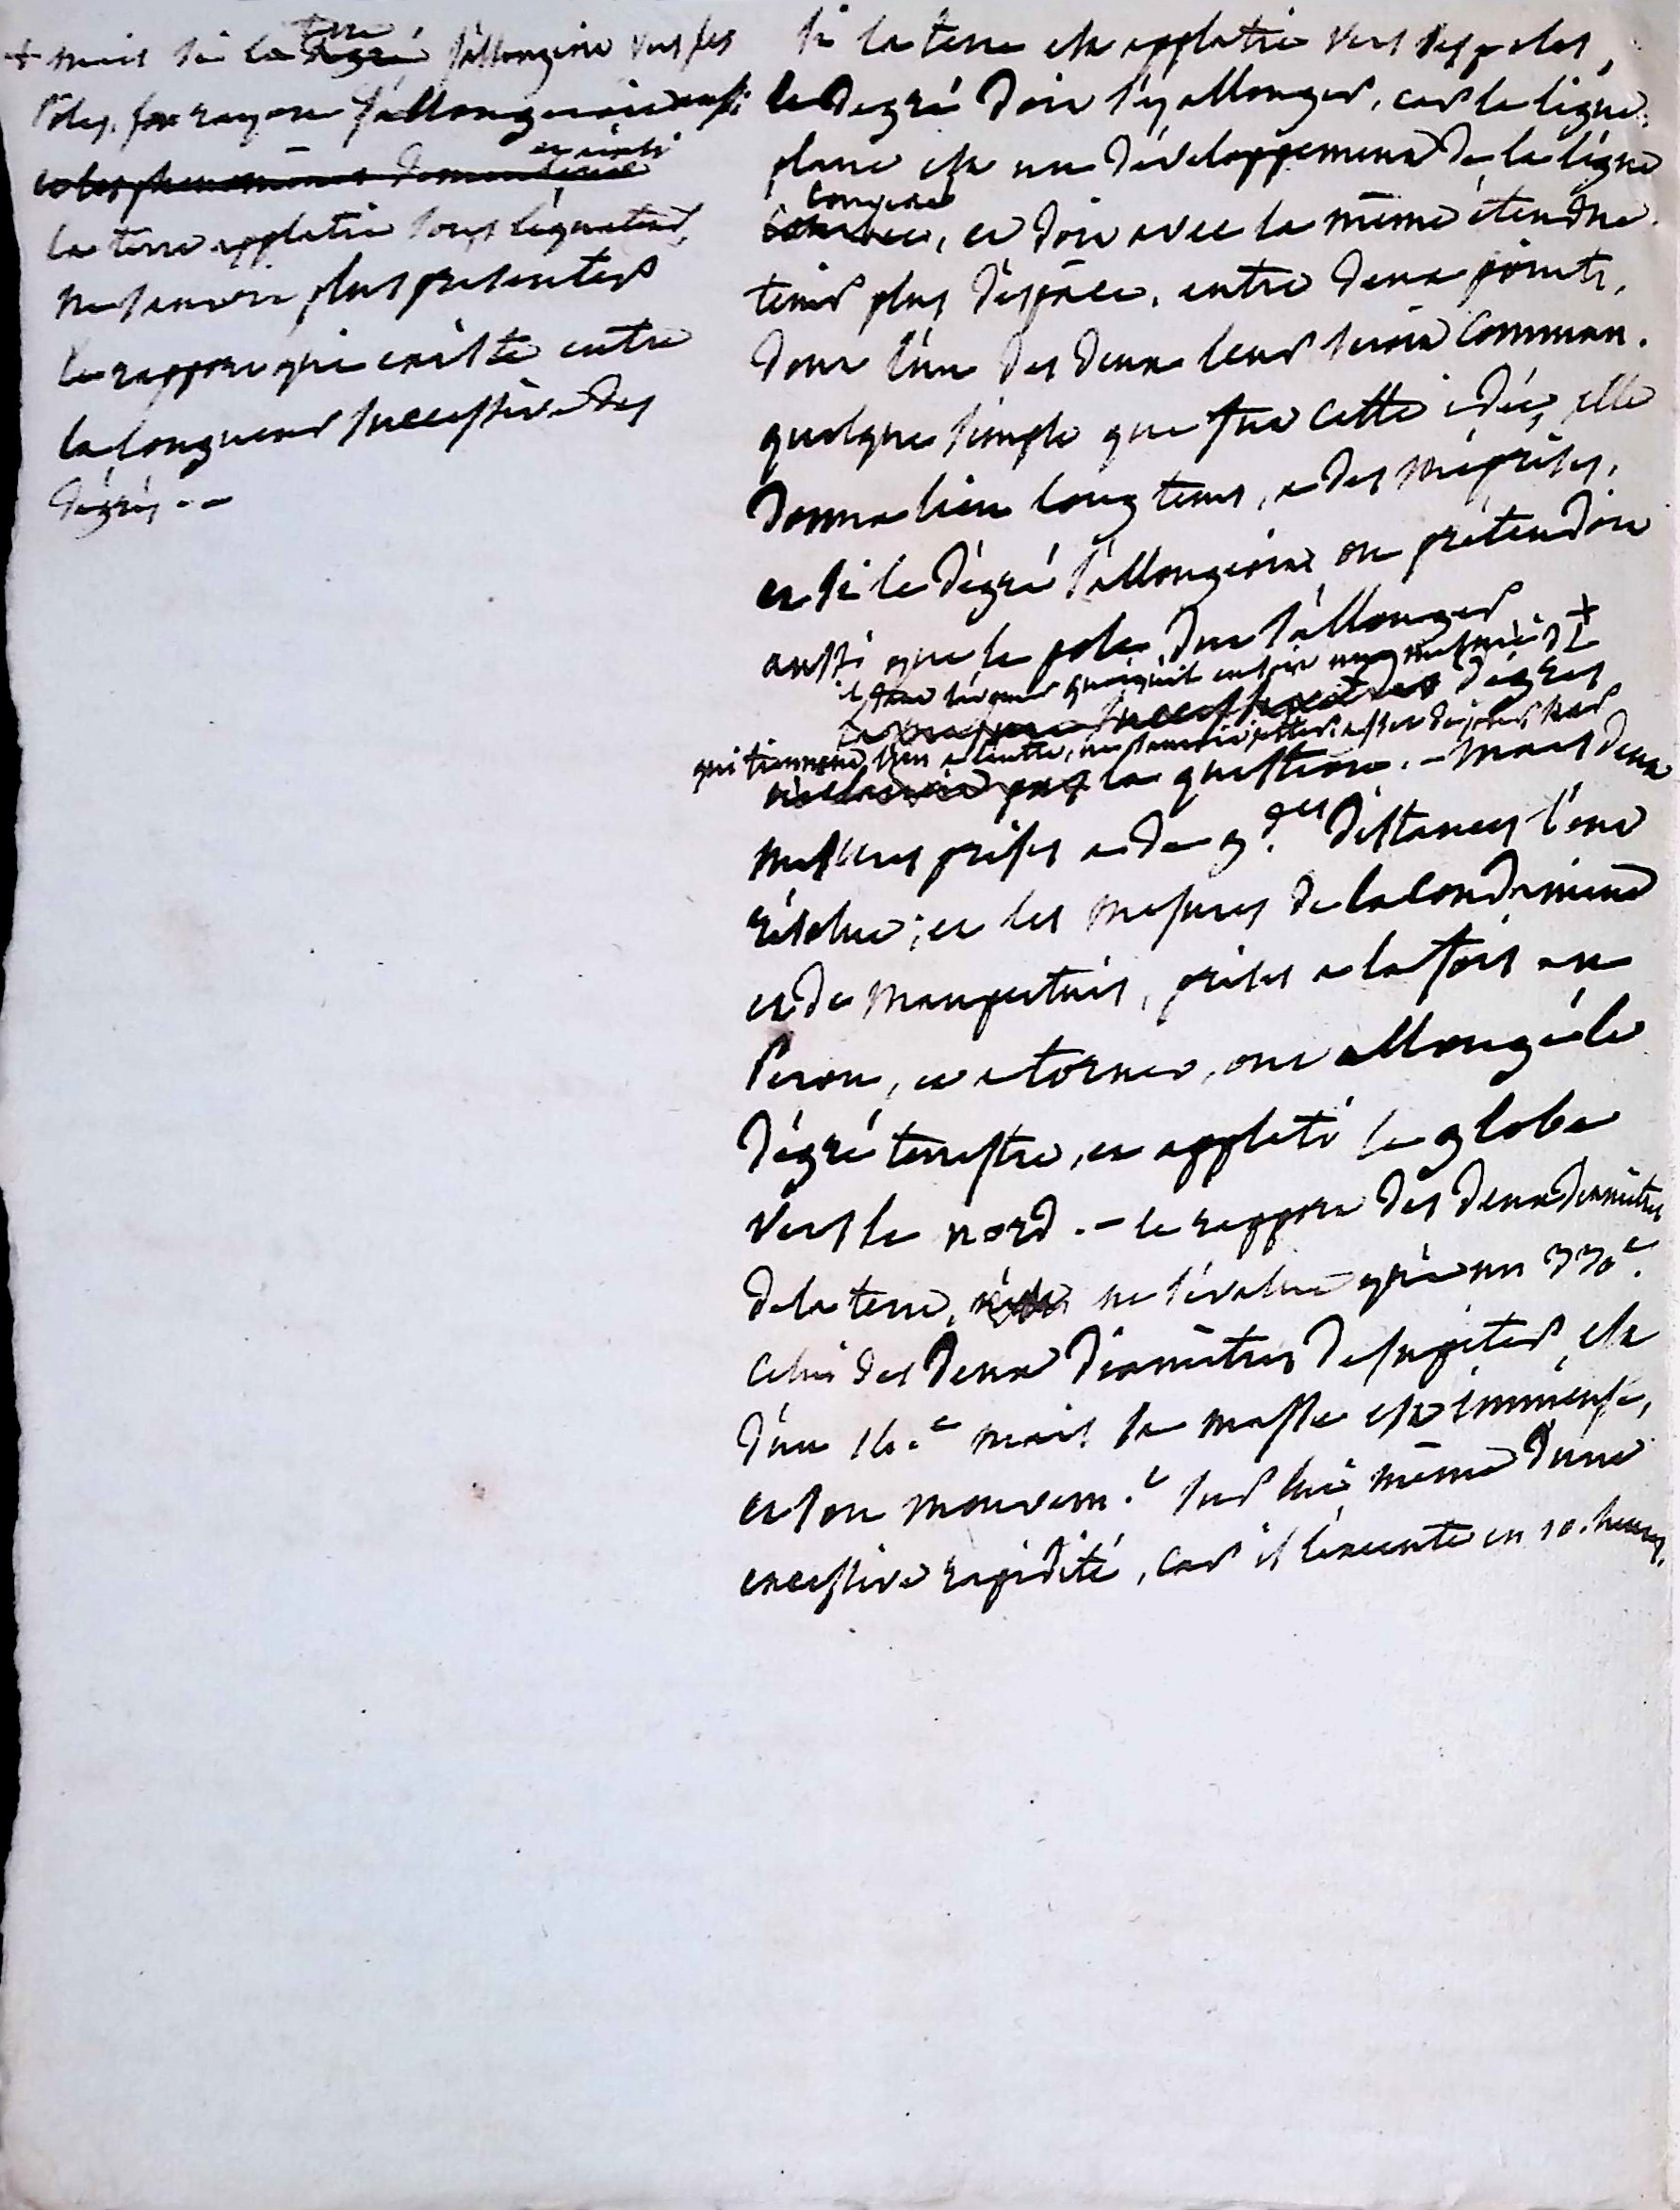 + mais si la terre s'allongeoit vers les
Poles, son rayon s'allongeroit aussi
et les phenomènes
et ainsi
la terre applatie sous l'équateur,
ne sauroit plus presenter
le rapport qui existe entre
la longueur successive des
dégrés --
si la terre est applatie vers les poles,
le degré doit s'y allonger, car la ligne
plane est un développement de la ligne
courbée, et doit avec la même étendue
tenir plus d'espace, entre deux points,
dont l'un des deux leur seroit commun.
quelque simple que fut cette idée, elle
donna lieu longtems, a des méprises,
et si le dégré s'allongeoit on prétendoit
aussi que le pole dut s'allonger +
il faut l'avouer quoiqu'il en soit
successive des dégrés
qui tiennent l'un a l'autre, ne sauroit jetter assez de jour sur
la question. - mais deux
mesures prises a de g.des distances l'ont
résolue; et les mesures de la Condamine
et de Maupertuis, prises a la fois au
Perou, et a torneo, ont allongé le
dégré terrestre, et applati le globe
vers le nord. - le rapport des deux diamètres
de la terre, ne s'évalue qu'a un 330e.
celui des deux diamètres de Jupiter, est
d'un 14.e mais sa masse est immense,
et son mouvem.t sur lui même d'une
excessive rapidité, car il l'execute en 10. heures,